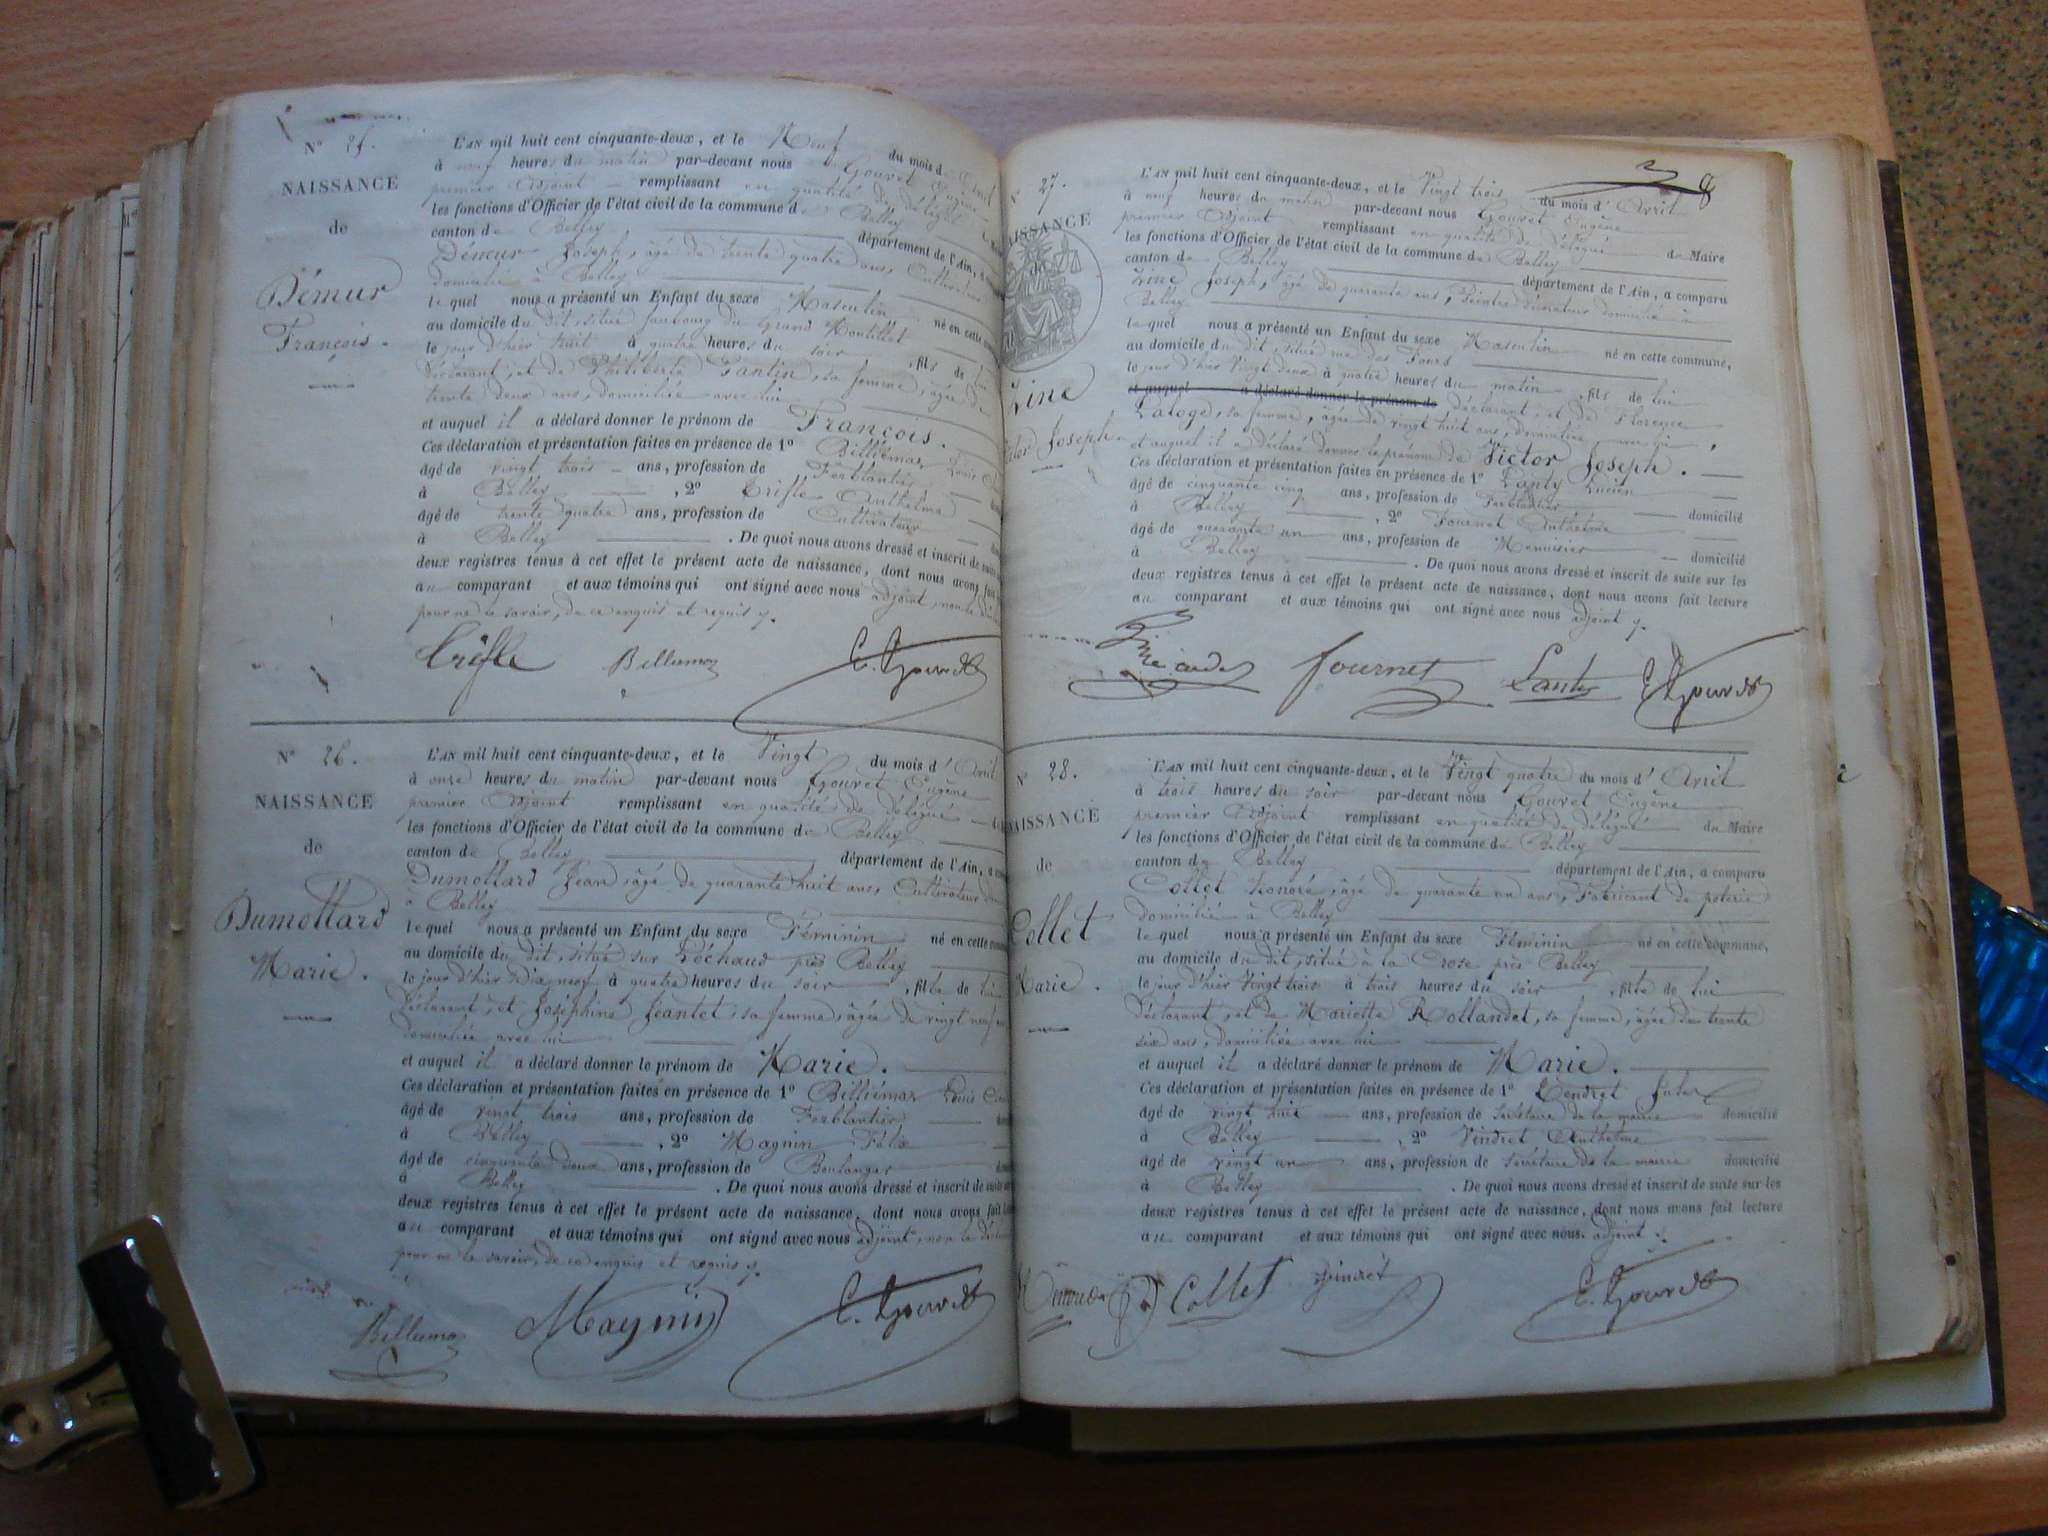 N° 25.
NAISSANCE
de
Démeur
François.
L'AN mil huit cent cinquante-deux, et le Neuf du mois d'Avril
à neuf heures du matin par-devant nous Gouvet Eugène
premier Adjoint remplissant en qualité de délégué
les fonctions d'Officier de l'état civil de la commune de Belley
canton de Belley département de l'Ain, a
Démeur Joseph, âgé de trente quatre ans, Cultivateur
domicilié à Belley
lequel nous a présenté un Enfant du sexe Masculin né en cette
au domicile du dit, situé faubourg du Grand
le jour d'hier huit à quatre heures du soir, fils de lui
déclarant, et de Philiberte Pantin, sa femme, âgée de
trente deux ans, domiciliée avec lui
et auquel il a déclaré donner le prénom de François.
Ces déclaration et présentation faites en présence de 1° Billiémaz Louis
âgé de vingt trois ans, profession de Ferblantier
à Belley, 2° Trifle Anthelme
âgé de trente quatre ans, profession de Cultivateur
à Belley. De quoi nous avons dressé et inscrit de suite
deux registres tenus à cet effet le présent acte de naissance, dont nous avons fait
au comparant et aux témoins qui ont signé avec nous adjoint, non le
pour ne le savoir, de ce enquis et requis
Trifle Billiemaz E. Gouvet
N° 26.
NAISSANCE
de
Dumollard
Marie.
L'AN mil huit cent cinquante-deux, et le Vingt du mois d'Avril
à onze heures du matin par-devant nous Gouvet Eugène
premier Adjoint remplissant en qualité de délégué
les fonctions d'Officier de l'état civil de la commune de Belley
canton de Belley département de l'Ain, a
Dumollard Jean, âgé de quarante huit ans, Cultivateur
à Belley
lequel nous a présenté un Enfant du sexe Féminin né en cette
au domicile du dit, situé sur Léchaud près Belley
le jour d'hier Dix neuf à quatre heures du soir, fille de lui
déclarant, et Joséphine Jeantet, sa femme, âgée de vingt neuf
domiciliée avec lui
et auquel il a déclaré donner le prénom de Marie.
Ces déclaration et présentation faites en présence de 1° Billiémaz Louis
âgé de vingt trois ans, profession de Ferblantier
à Belley, 2° Magnin Félix
âgé de cinquante deux ans, profession de Boulanger
à Belley. De quoi nous avons dressé et inscrit de suite
deux registres tenus à cet effet le présent acte de naissance, dont nous avons fait
au comparant et aux témoins qui ont signé avec nous adjoint, non le
pour ne le savoir, de ce enquis et requis
Billiemaz Magnin E. Gouvet
8
27.
NAISSANCE
Zine
Joseph
L'AN mil huit cent cinquante-deux, et le Vingt trois du mois d'Avril
à neuf heures du matin par-devant nous Gouvet Eugène
premier Adjoint remplissant en qualité de délégué du Maire
les fonctions d'Officier de l'état civil de la commune de Belley
canton de Belley département de l'Ain, a comparu
Zine Joseph, âgé de quarante ans, Peintre domicilié à
Belley
lequel nous a présenté un Enfant du sexe Masculin né en cette commune,
au domicile du dit, situé rue des Fours
le jour d'hier Vingt deux à quatre heures du matin, fils de lui
et auquel a déclaré donner le prénom de déclarant, et de Florence
Laloge, sa femme, âgée de vingt huit ans, domiciliée avec lui,
et auquel il a déclaré donner le prénom de Victor Joseph.
Ces déclaration et présentation faites en présence de 1° Lanty Lucien
âgé de cinquante cinq ans, profession de Ferblantier domicilié
à Belley, 2° Fournet Anthelme
âgé de quarante un ans, profession de Menuisier domicilié
à Belley. De quoi nous avons dressé et inscrit de suite sur les
deux registres tenus à cet effet le présent acte de naissance, dont nous avons fait lecture
au comparant et aux témoins qui ont signé avec nous adjoint
fournet Lanty E. Gouvet
N° 28.
NAISSANCE
de
Collet
Marie.
L'AN mil huit cent cinquante-deux, et le Vingt quatre du mois d'Avril
à trois heures du soir par-devant nous Gouvet Eugène
premier Adjoint remplissant en qualité de délégué du Maire
les fonctions d'Officier de l'état civil de la commune de Belley
canton de Belley département de l'Ain, a comparu
Collet Honoré, âgé de quarante un ans, Fabricant de poterie
domicilié à Belley
lequel nous a présenté un Enfant du sexe Féminin né en cette commune,
au domicile du dit, situé à la Crose près Belley
le jour d'hier Vingt trois à trois heures du soir, fille de lui
déclarant, et de Mariette Rollandet, sa femme, âgée de trente
six ans, domiciliée avec lui
et auquel il a déclaré donner le prénom de Marie.
Ces déclaration et présentation faites en présence de 1°
âgé de vingt huit ans, profession de Secrétaire de la mairie domicilié
à Belley, 2° Vindret Anthelme
âgé de vingt un ans, profession de Secrétaire de la mairie domicilié
à Belley. De quoi nous avons dressé et inscrit de suite sur les
deux registres tenus à cet effet le présent acte de naissance, dont nous avons fait lecture
au comparant et aux témoins qui ont signé avec nous adjoint
Collet Vindret E. Gouvet